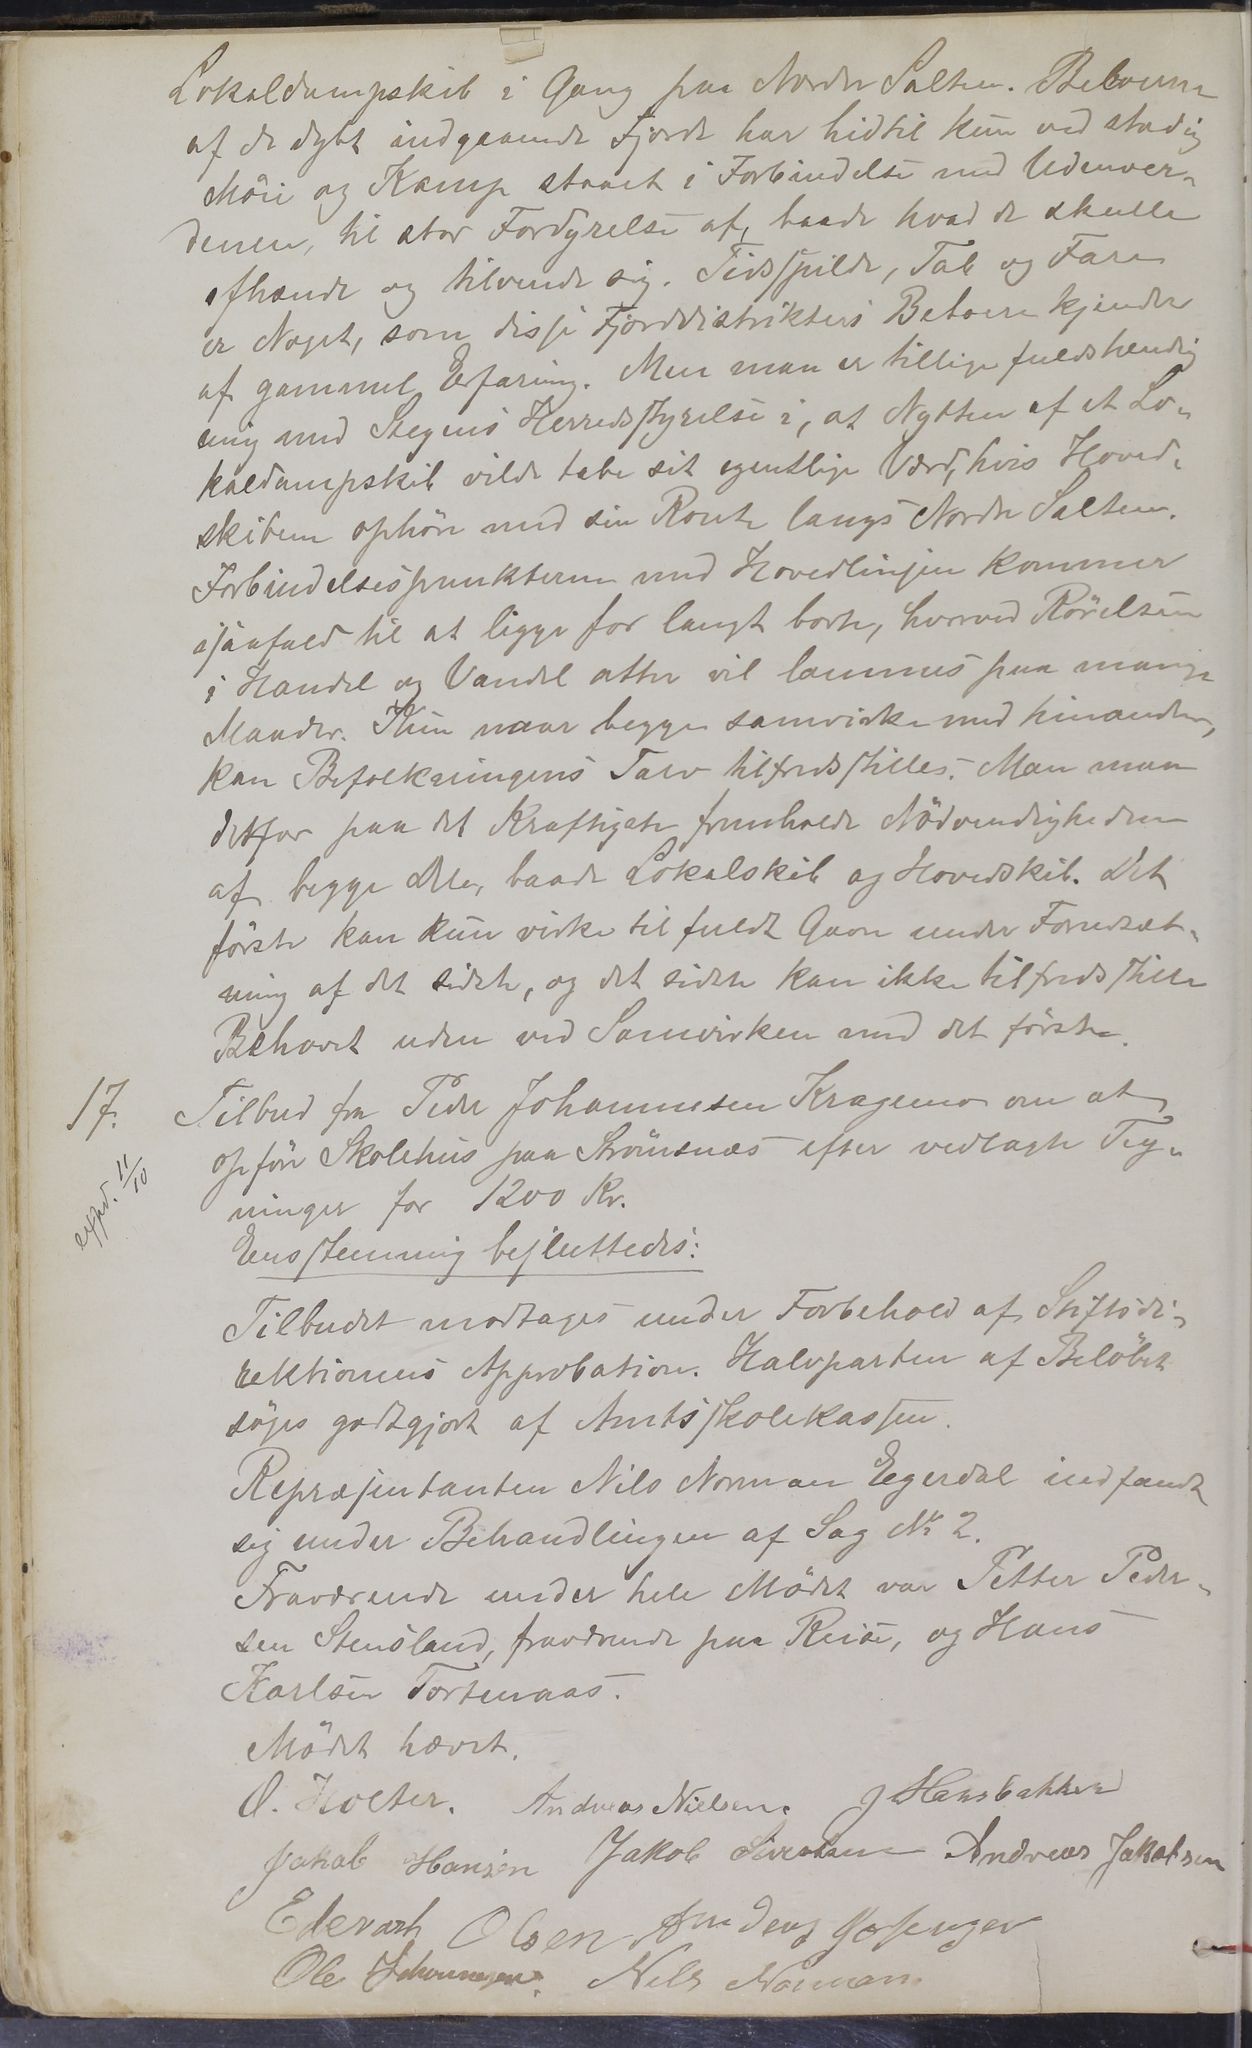 Lokaldampskib i Gang paa Nordre Salten. Beboerne
af de dybt indgaaende Fjorde har hidtil kun ved stadig
Möie og Kamp staaet i Forbindelse med Udenver-
denen, til stor Fordyrelse af, baade hvad de skulle
afhænde og tilvende sig. Tidsspilde, Tab og Fare
er Noget, som disse Fjorddistrikters Beboere kjender
af gammel Erfaring. Men man er tillige fuldstændig
enig med Stegens Herredsstyrelse i, at Nytten af et Lo-
kaldampskib vilde tabe sit egentlige Værd, hvis Hoved-
skibene ophöre med sin Route langs Nordre Salten.
Forbindelsespunkterne med Hovedlinjen kommer
isaafald til at ligge for langt borte, hvorved Rörelsen
i Handel og Vandel atter vil lammes paa mange
Maader. Kun naar begge samvirke med hinanden,
kan Befolkningens Tarv tilfredsstilles. Man maa
derfor paa det Kraftigste fremholde Nödvendigheden
af begge Dele, baade Lokalskib og Hovedskib. Det
förste kan kun virke til fuldt Gavn under Forudsæt-
ning af det sidste, og det sidste kan ikke tilfredsstille
Behovet uden ved Samvirken med det förste.
17. Tilbud fra Peder Johannesen Kragemo om at
opföre Skolehus paa Strömsnæs efter vedlagte Teg-
expd. 11/10
ninger for 1200 Kr.
Eenstemmig besluttedes:
Tilbudet modtages under Forbehold af Stiftsdi-
rektionens Approbation. Halvparten af Belöbet
söges godtgjort af Amtsskolekassen.
Repræsentanten Nils Norman Egerdal indfandt
sig under Behandlingen af Sag No 2.
Fraværende under hele Mödet var Petter Peder-
sen Stensland, fraværende paa Reise, og Hans
Karlsen Tortenaas.
Mödet hævet.
O. Holter. Andreas Nielsen. J Hansbakken
Jakob Hansen Jakob Sivertsen Andreas Jakobsen
Edevart Olsen
Ole Johannesen. Nils Norman